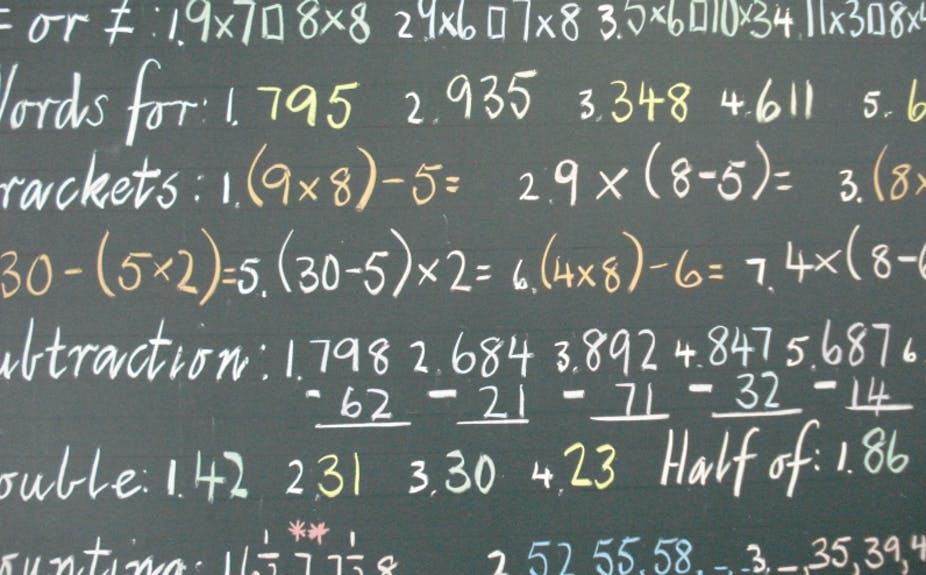 = or ≠ : 1. 9×7 □ 8×8 2. 9×6 □ 7×8 3. 5×6 □ 10×3 4. 11×3 □ 8×4
Words for: 1. 795 2. 935 3. 348 4. 611 5. 6
rackets: 1. (9×8)-5= 2. 9×(8-5)= 3. (8×
30-(5×2)= 5. (30-5)×2= 6. (4×8)-6= 7. 4×(8-6
ubtraction: 1. 798 2. 684 3. 892 4. 847 5. 687 6
- 62 - 21 - 71 - 32 - 14
ouble: 1. 42 2. 31 3. 30 4. 23 Half of: 1. 86
ounting: 2. 52, 55, 58, -, 3. -, 35, 39, 4